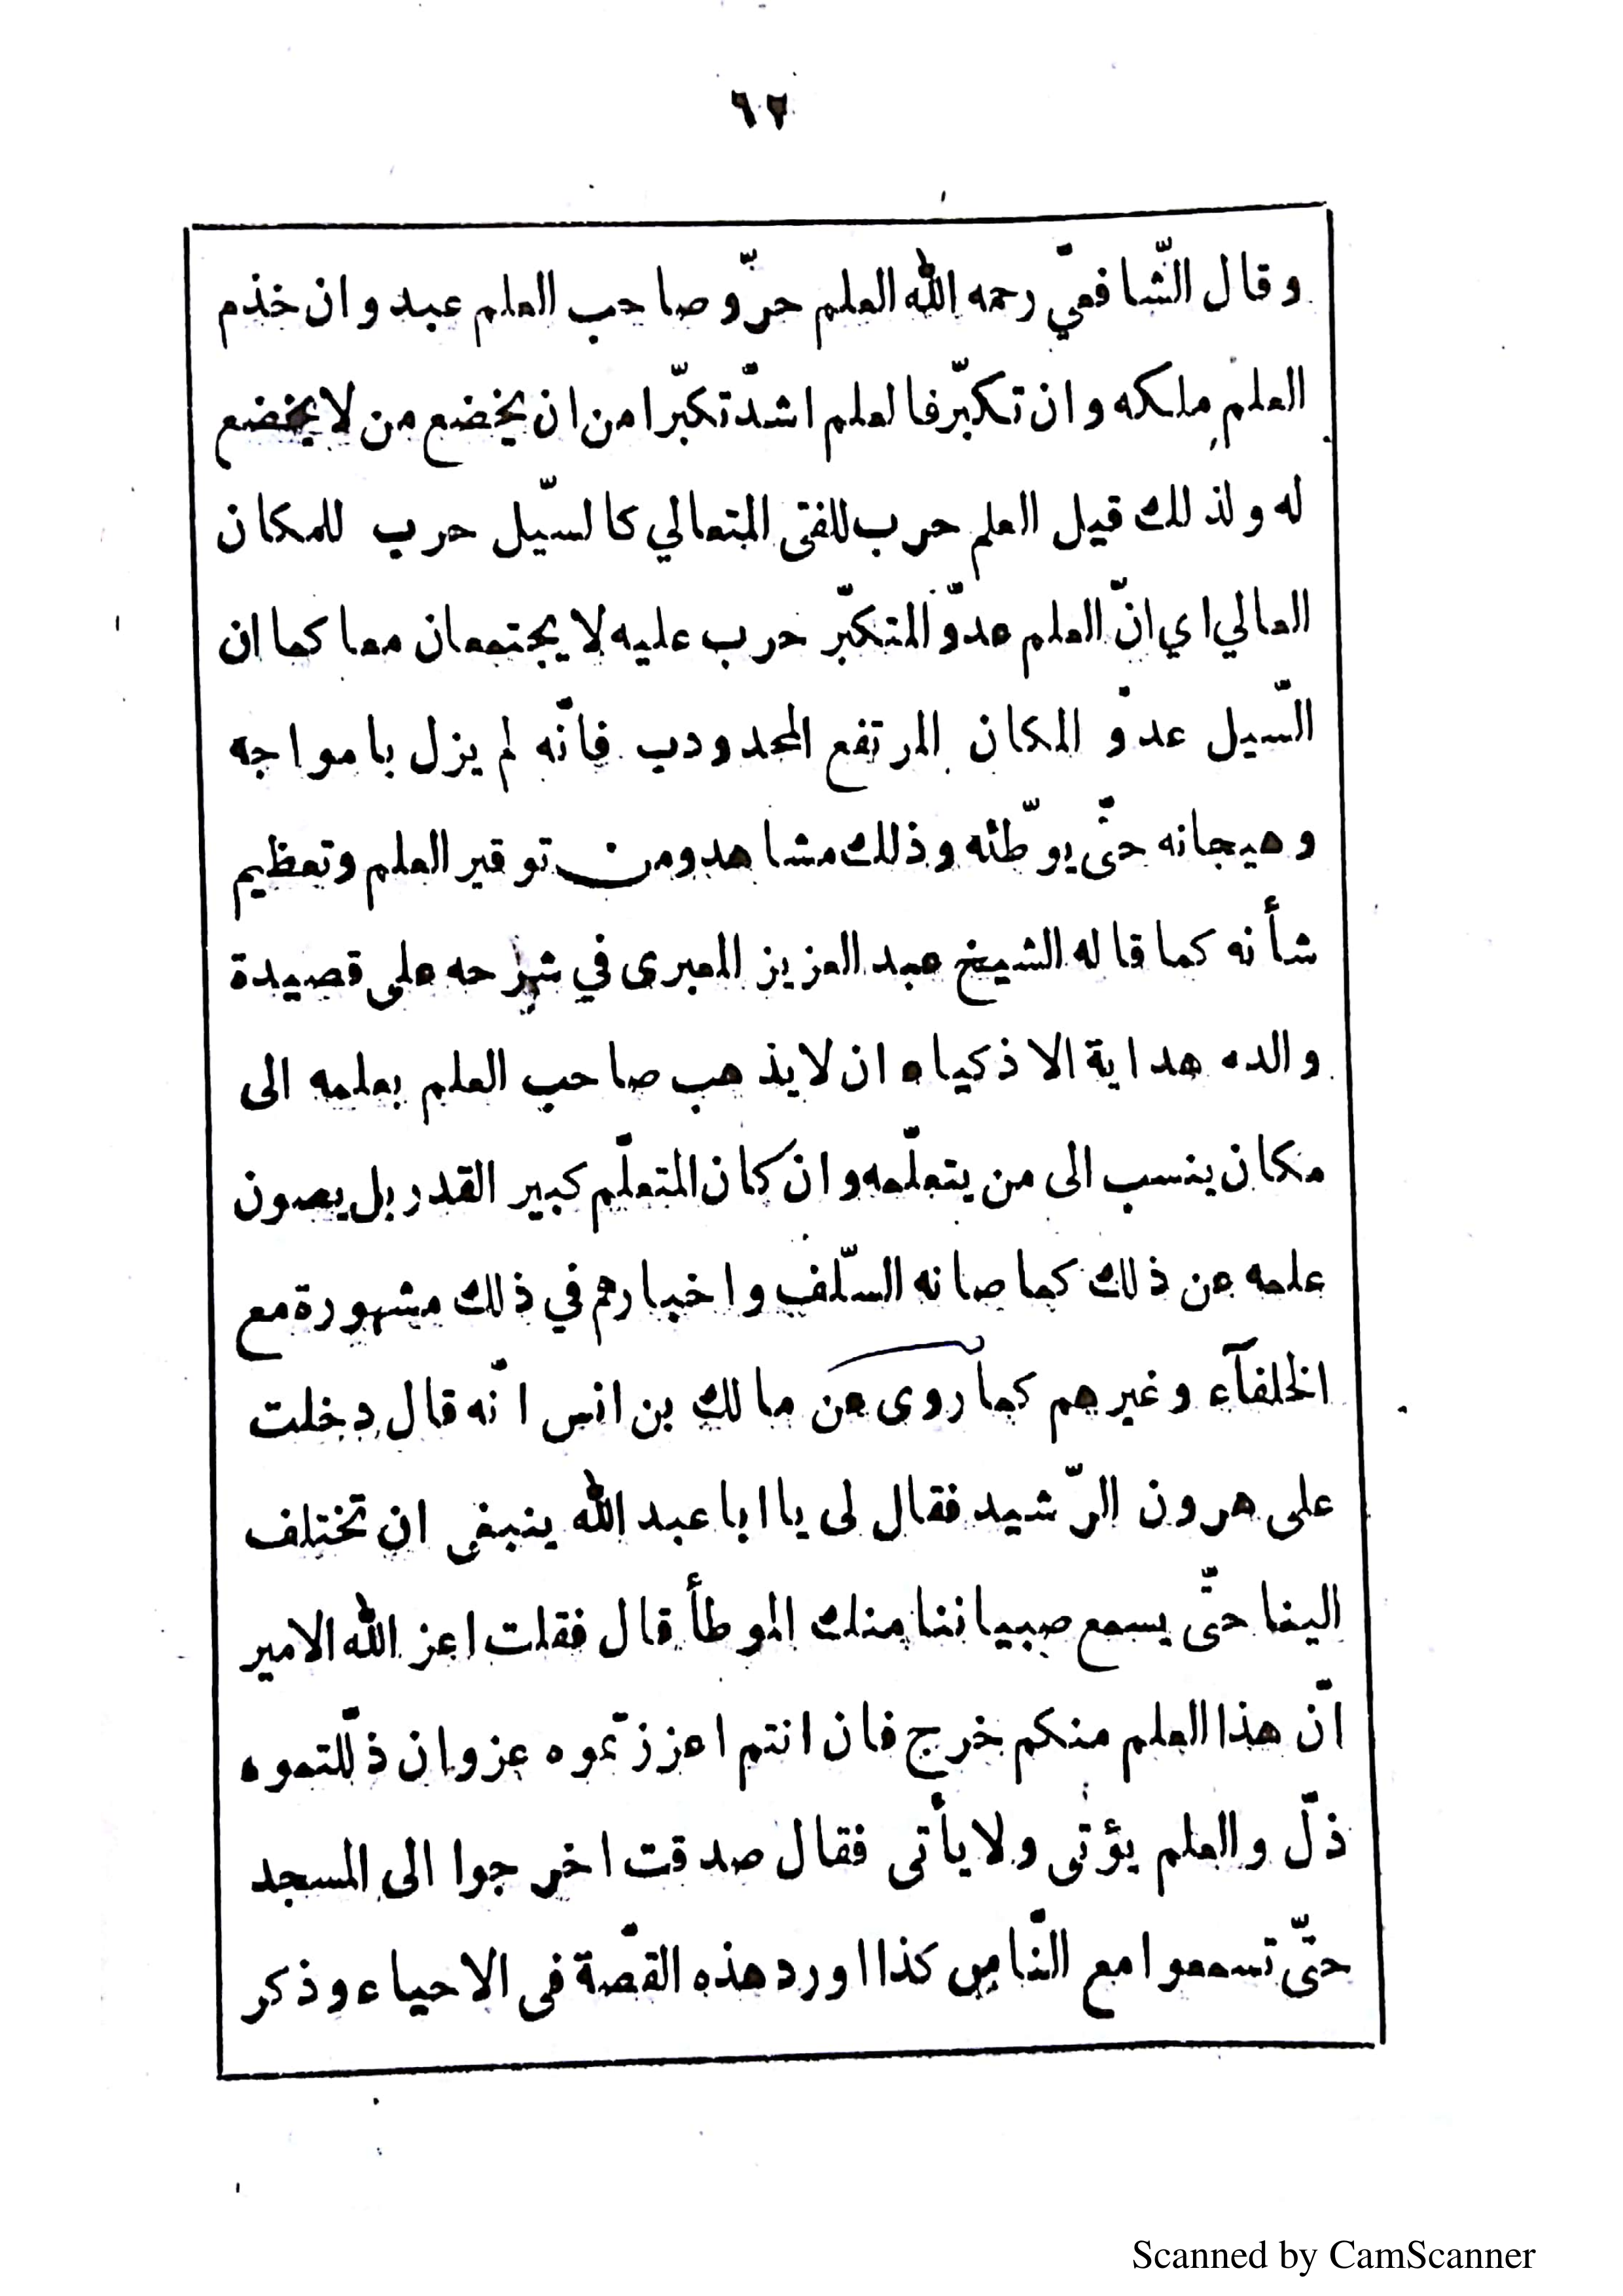 ٦٢
وقال الشّافعيّ رحمه الله العلم حرّ وصاحب العلم عبد وان خذم
العلم ملكه وان تكبّر فالعلم اشدّ تكبّرا من ان يخضع من لا يخضع
له ولذلك قيل العلم حرب للفتى المتعالي كالسّيل حرب للمكان
العالي اي انّ العلم عدوّ المتكبّر حرب عليه لا يجتمعان معا كما ان
السّيل عدوّ المكان المرتفع المحدودب فانّه لم يزل بامواجه
وهيجانه حتّى يوطّئه وذلك مشاهد ومن توقير العلم وتعظيم
شأنه كما قاله الشيخ عبد العزيز المعبرى في شرحه على قصيدة
والده هداية الاذكياء ان لا يذهب صاحب العلم بعلمه الى
مكان ينسب الى من يتعلّمه وان كان المتعلّم كبير القدر بل يصون
علمه عن ذلك كما صانه السّلف واخبارهم في ذلك مشهورة مع
الخلفآء وغيرهم كما روى عن مالك بن انس انّه قال دخلت
على هرون الرّشيد فقال لى يا ابا عبد الله ينبغى ان تختلف
الينا حتّى يسمع صبياننا منك الموطأ قال فقلت اعز الله الامير
انّ هذا العلم منكم خرج فان انتم اعززتموه عز وان ذلّلتموه
ذلّ والعلم يؤتى ولا يأتى فقال صدقت اخرجوا الى المسجد
حتّى تسمعوا مع النّاس كذا اورد هذه القصّة فى الاحياء وذكر
Scanned by CamScanner